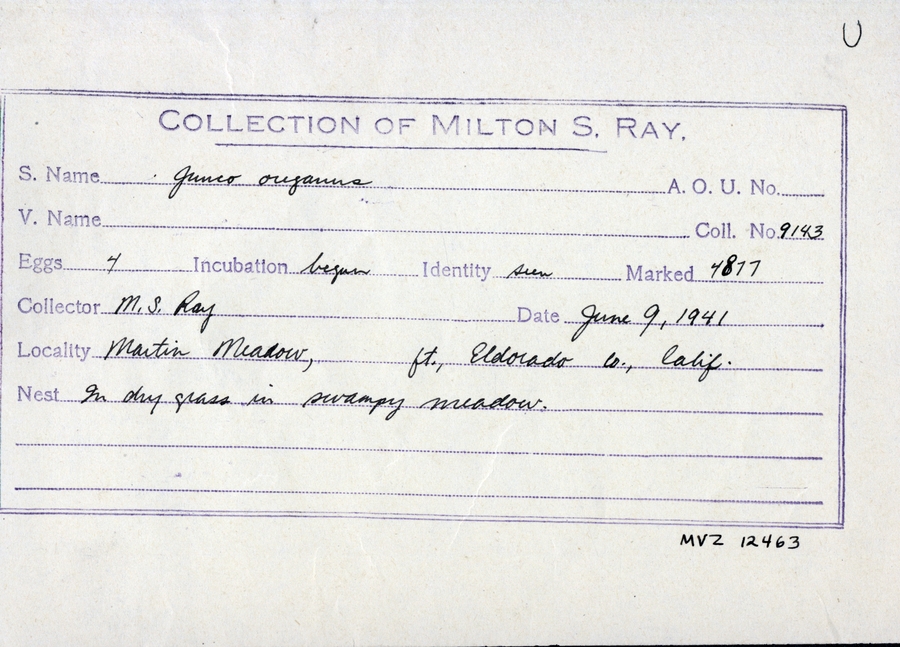 U
COLLECTION OF MILTON S. RAY.
S. Name Junco oreganus A. O. U. No.
V. Name Coll. No. 9143
Eggs 4 Incubation begun Identity seen Marked 4877
Collector M. S. Ray Date June 9, 1941
Locality Martin Meadow, ft., Eldorado Co., Calif.
Nest In dry grass in swampy meadow.
MVZ 12463